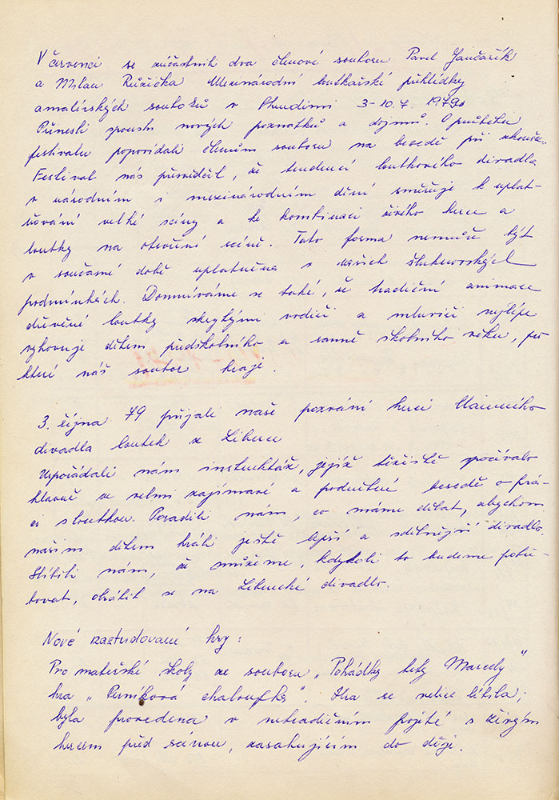 V červenci se zúčastnili dva členové souboru Pavel Jančařík
a Milan Růžička Mezinárodní loutkářské přehlídky
amatérských souborů v Chrudimi 3-10.7. 1979.
Přinesli spoustu nových poznatků a dojmů. O průběhu
festivalu popovídali členům souboru na besedě při zkoušce.
Festival nás přesvědčil, že tendencí loutkového divadla
v národním i mezinárodním dění směřuje k uplat-
ňování velké scény a ke kombinaci živého herce a
loutky na otevřené scéně. Tato forma nemůže být
v současné době uplatněna v našich
podmínkách. Domníváme se také, že tradiční animace
dřevěné loutky skrytými vodiči a mluviči nejlépe
vyhovuje dětem předškolního a raně školního věku, pro
které náš soubor hraje.
3. října 79 přijali naše pozvání herci
divadla loutek z Liberce
Uspořádali nám instruktáž, jejíž těžiště spočívalo
hlavně ve velmi zajímavé a podnětné besedě o prá-
ci s loutkou. Poradili nám, co máme dělat, abychom
našim dětem hráli ještě lepší a sdělnější divadlo.
Slíbili nám, že můžeme, kdykoli to budeme potře-
bovat, obrátit se na Liberecké divadlo.
Nové nastudované hry:
Pro mateřské školy ze souboru "Pohádky tety Marcely"
hra "Perníková chaloupka". Hra se velice líbila;
byla provedena v netradičním pojetí s živým
hercem před scénou, zasahujícím do děje.